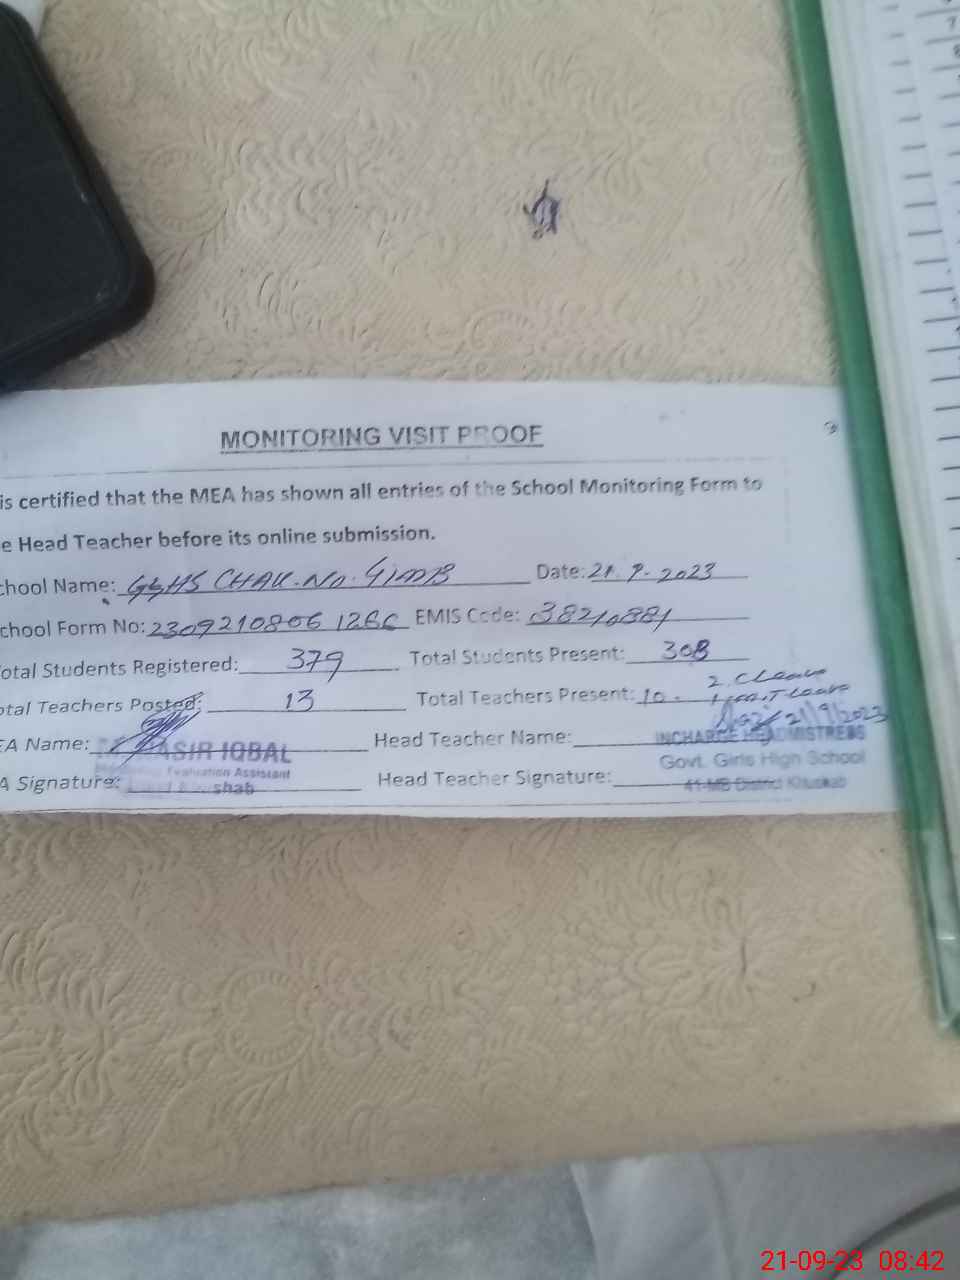 MONITORING VISIT PROOF
is certified that the MEA has shown all entries of the School Monitoring Form to
e Head Teacher before its online submission.
chool Name: GGHS CHAK. No. 41 MB Date: 21.9.2023
chool Form No: 2309210806 EMIS Code: 38210881
otal Students Registered: 379 Total Students Present: 308
2. C Leave
otal Teachers Posted: 13 Total Teachers Present: 10.
21/9/2023
EA Name: ASIR IQBAL Head Teacher Name: INCHARGE HEADMISTRESS
Evaluation Assistant Govt. Girls High School
A Signature: shab Head Teacher Signature: 41-MB District Khushab
7
8
21-09-23 08:42